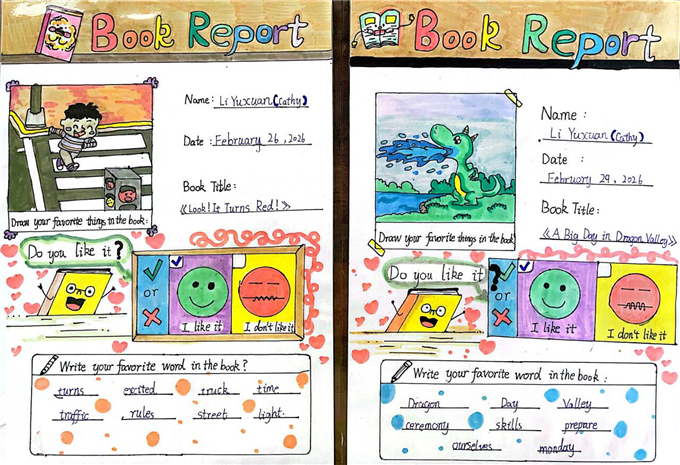 Book Report
Name: Li Yuxuan (Cathy)
Date: February 26, 2026
Book Title:
《Look! It Turns Red!》
Draw your favorite things in the book:
Do you like it?
or
I like it
I don't like it
Write your favorite word in the book?
turns excited truck time
traffic rules street light.
Book Report
Name:
Li Yuxuan (Cathy)
Date :
February 29, 2026
Book Title:
《A Big Day in Dragon Valley》
Draw your favorite things in the book
Do you like it?
or
I like it
I don't like it
Write your favorite word in the book:
Dragon Day Valley
ceremony skills prepare
ourselves monday